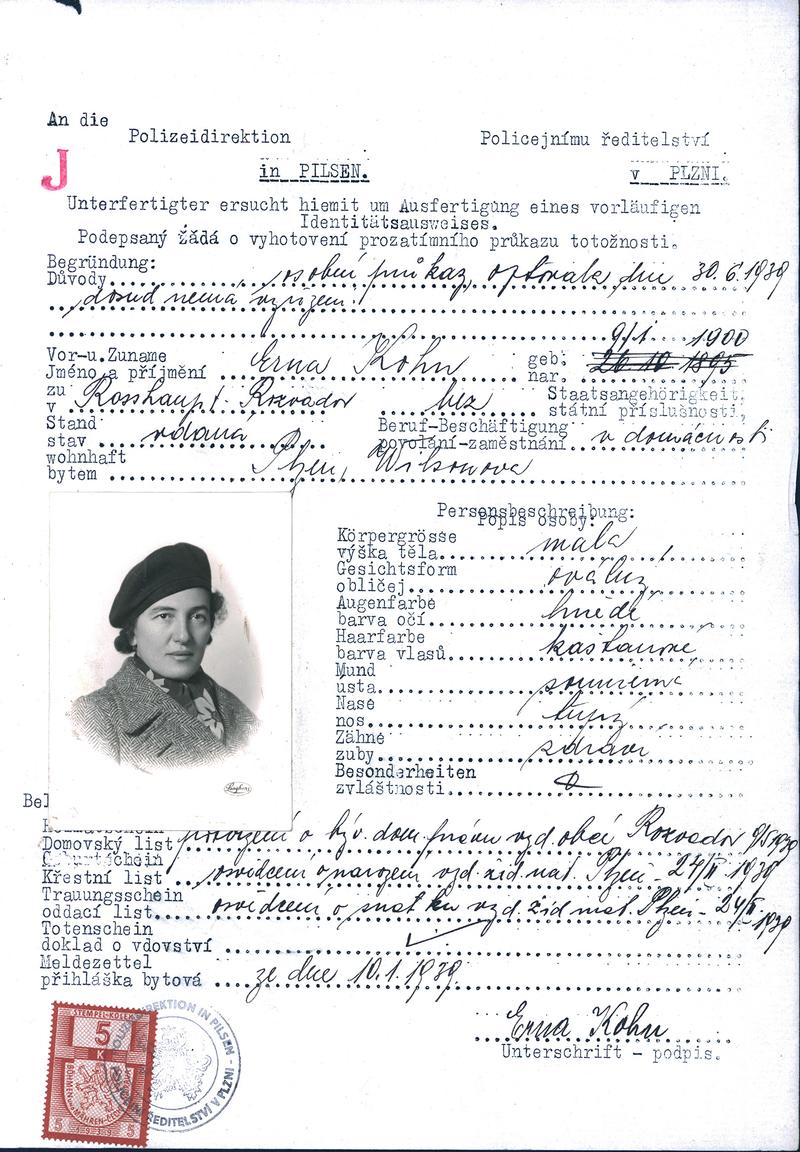 An die
Polizeidirektion Policejnímu ředitelství
J in PILSEN. v PLZNI.
Unterfertigter ersucht hiemit um Ausfertigung eines vorläufigen
Identitätsausweises.
Podepsaný žádá o vyhotovení prozatímního průkazu totožnosti.
Begründung:
Důvody osobní průkaz, dne 30.6.1939
dosud nemá vyřízen.
9/I. 1900
Vor-u.Zuname Erna Kohn geb.
Jméno a příjmění nar. 26 10 1895
zu Rosshaupt - Rozvadov bez Staatsangehörigkeit,
v státní příslušnosti,
Stand vdaná Beruf-Beschäftigung v domácnosti
stav povolání-zaměstnání
wohnhaft Plzeň, Wilsonova
bytem
Personsbeschreibung:
Popis osoby:
Körpergrösse malá
výška těla
Gesichtsform oválný
obličej
Augenfarbe hnědé
barva očí
Haarfarbe kaštanové
barva vlasů
Mund souměrná
usta
Nase tupý
nos
Zähne zdravé
zuby
Besonderheiten
zvláštnosti
Bei
Domovský list potvrzení o býv. dom. právu vyd. obcí Rozvadov
Geburtschein
Křestní list osvědčení o narození vyd. žid. mat. Plzeň - 24/II 1939
Trauungsschein
oddací list osvědčení o sňatku vyd. žid mat. Plzeň - 24/II 1939
Totenschein
doklad o vdovství
Meldezettel
přihláška bytová ze dne 10.1.1939.
Erna Kohn
Unterschrift - podpis.
STEMPEL-KOLEK
5
K
BÖHMEN MÄHREN
5 5
POLIZEIDIREKTION IN PILSEN
ŘEDITELSTVÍ V PLZNI